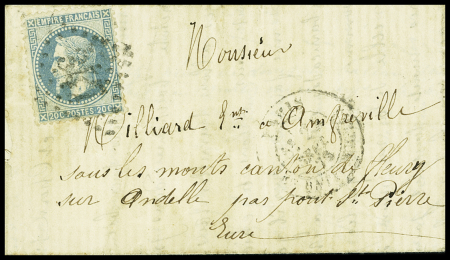 EMPIRE FRANÇAIS
20C POSTES 20C
Monsieur
Milliard à Amfreville
sous les monts canton de fleury
sur Andelle par pont St Pierre
Eure